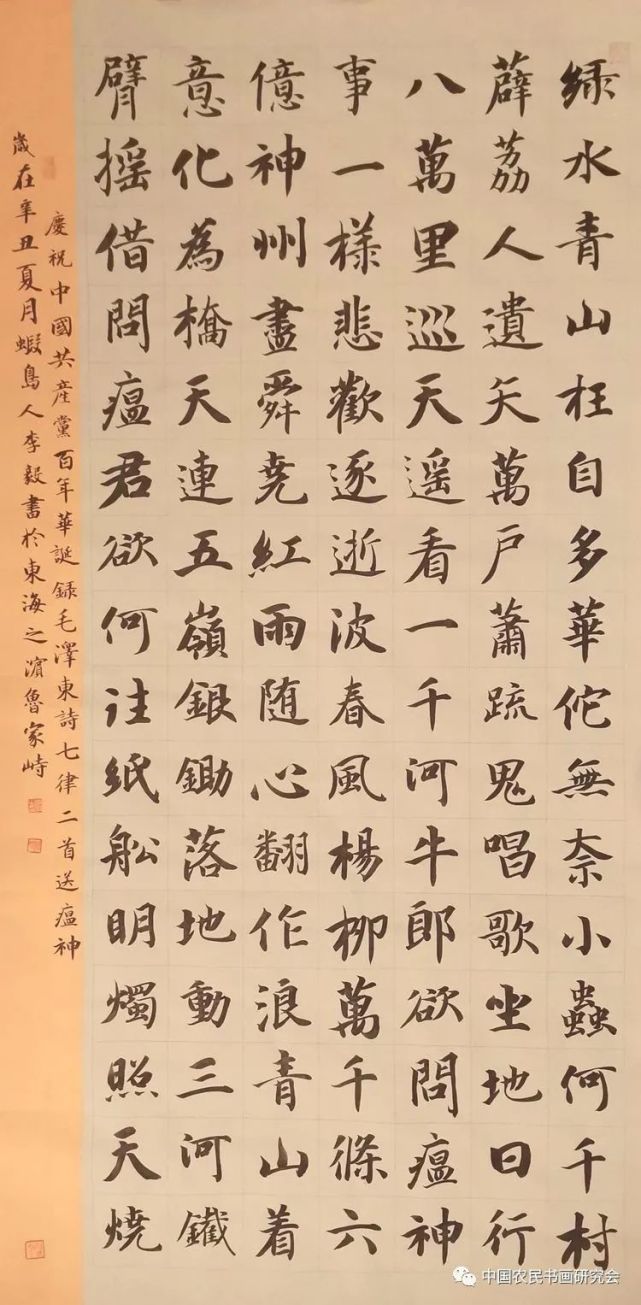 绿水青山枉自多華佗無奈小蟲何千村
薜荔人遺矢萬戶蕭疏鬼唱歌坐地日行
八萬里巡天遥看一千河牛郎欲問瘟神
事一樣悲歡逐逝波春風楊柳萬千條六
億神州盡舜堯紅雨随心翻作浪青山着
意化為橋天連五嶺銀鋤落地動三河鐵
臂摇借問瘟君欲何往紙船明燭照天燒
慶祝中國共産黨百年華誕録毛澤東詩七律二首送瘟神
歲在辛丑夏月蝦島人李毅書於東海之濵魯家峙
中国农民书画研究会